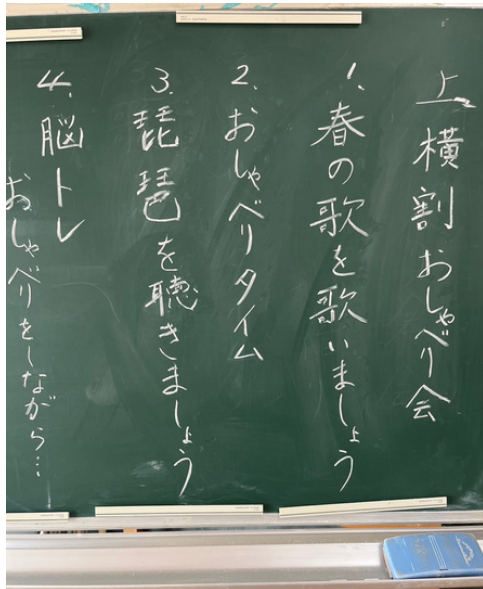 上横割おしゃべり会
1、春の歌を歌いましょう
2、おしゃべりタイム
3、琵琶を聴きましょう
4、脳トレ
おしゃべりをしながら…